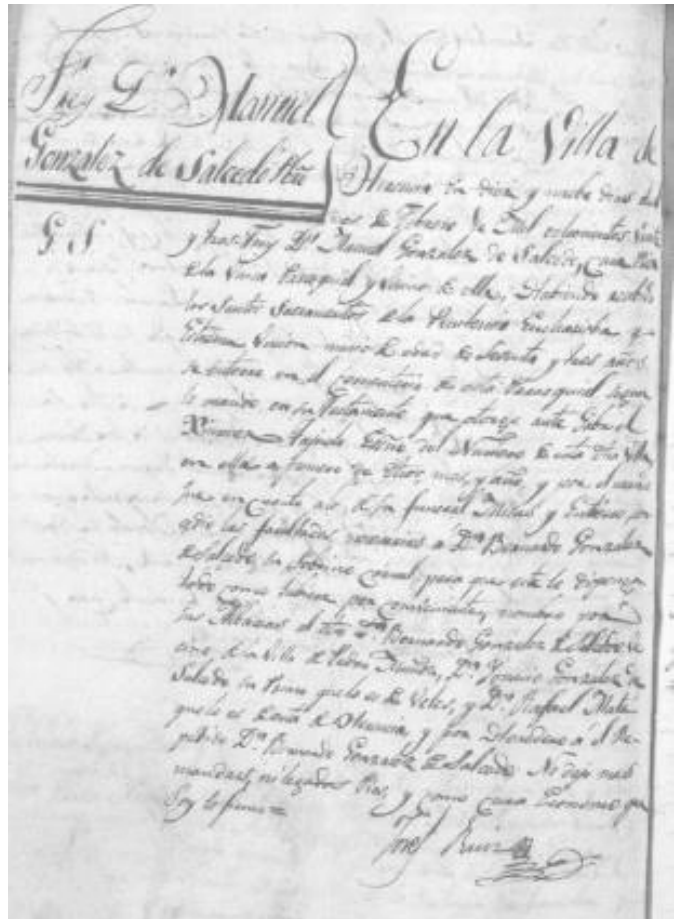 Frey Dn. Manuel
Gonzalez de Salcedo Pbro
G. S.
En la Villa de
Herencia en diez y nueve dias del
mes de Febrero de Mil ochocientos veinte
y tres: Frey Dn. Manuel Gonzalez de Salcedo, Cura Prior
de la Unica Parroquial y vecino de ella, Habiendo recibido
los Santos Sacramentos de la Penitencia Eucharistia y
Extrema Uncion murio de edad de sesenta y tres años
se enterro en el Cementerio de esta Parroquial segun
lo mando en su Testamento que otorgo ante Gabriel
Tajuelo Essno. del Numero de esta dha Villa
en ella a primero de dhos mes, y año, y por el
que en cuanto a su funeral Misas y Entierro
las facultades necesarias a Dn. Bernardo Gonzalez
de Salcedo, su sobrino carnal para que este lo
todo como tubiera por conveniente, nombro por
sus Albaceas al dho Dn. Bernardo Gonzalez de Salcedo
de la Villa de Dn. Ignacio Gonzalez de
Salcedo, su Primo que lo es de Velez, y Dn. Rafael
que lo es de esta de Herencia, y por Heredero a el
petido Dn. Bernardo Gonzalez de Salcedo. No dejo mas
mandas, ni legados Pios, y como Cura Economo que
Soy lo firmo =
Josef Ruiz